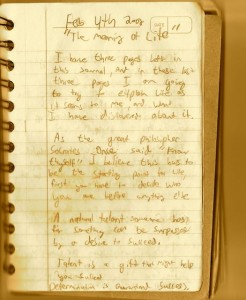 Feb 4th 2001
"The meaning of Life"
I have three pages left in
this journal, and in these last
three pages I am going
to try to explain life as
it seems to me, and what
I have discovered about it.
As the great philosopher
Socrates once said "Know
thyself" I believe this has to
be the starting point for us,
first you have to decide who
you are before anything else
A natural talent someone has
for something can be surpassed
by a desire to succeed.
Talent is a gift that might help
you succeed
Determination is guaranteed success.